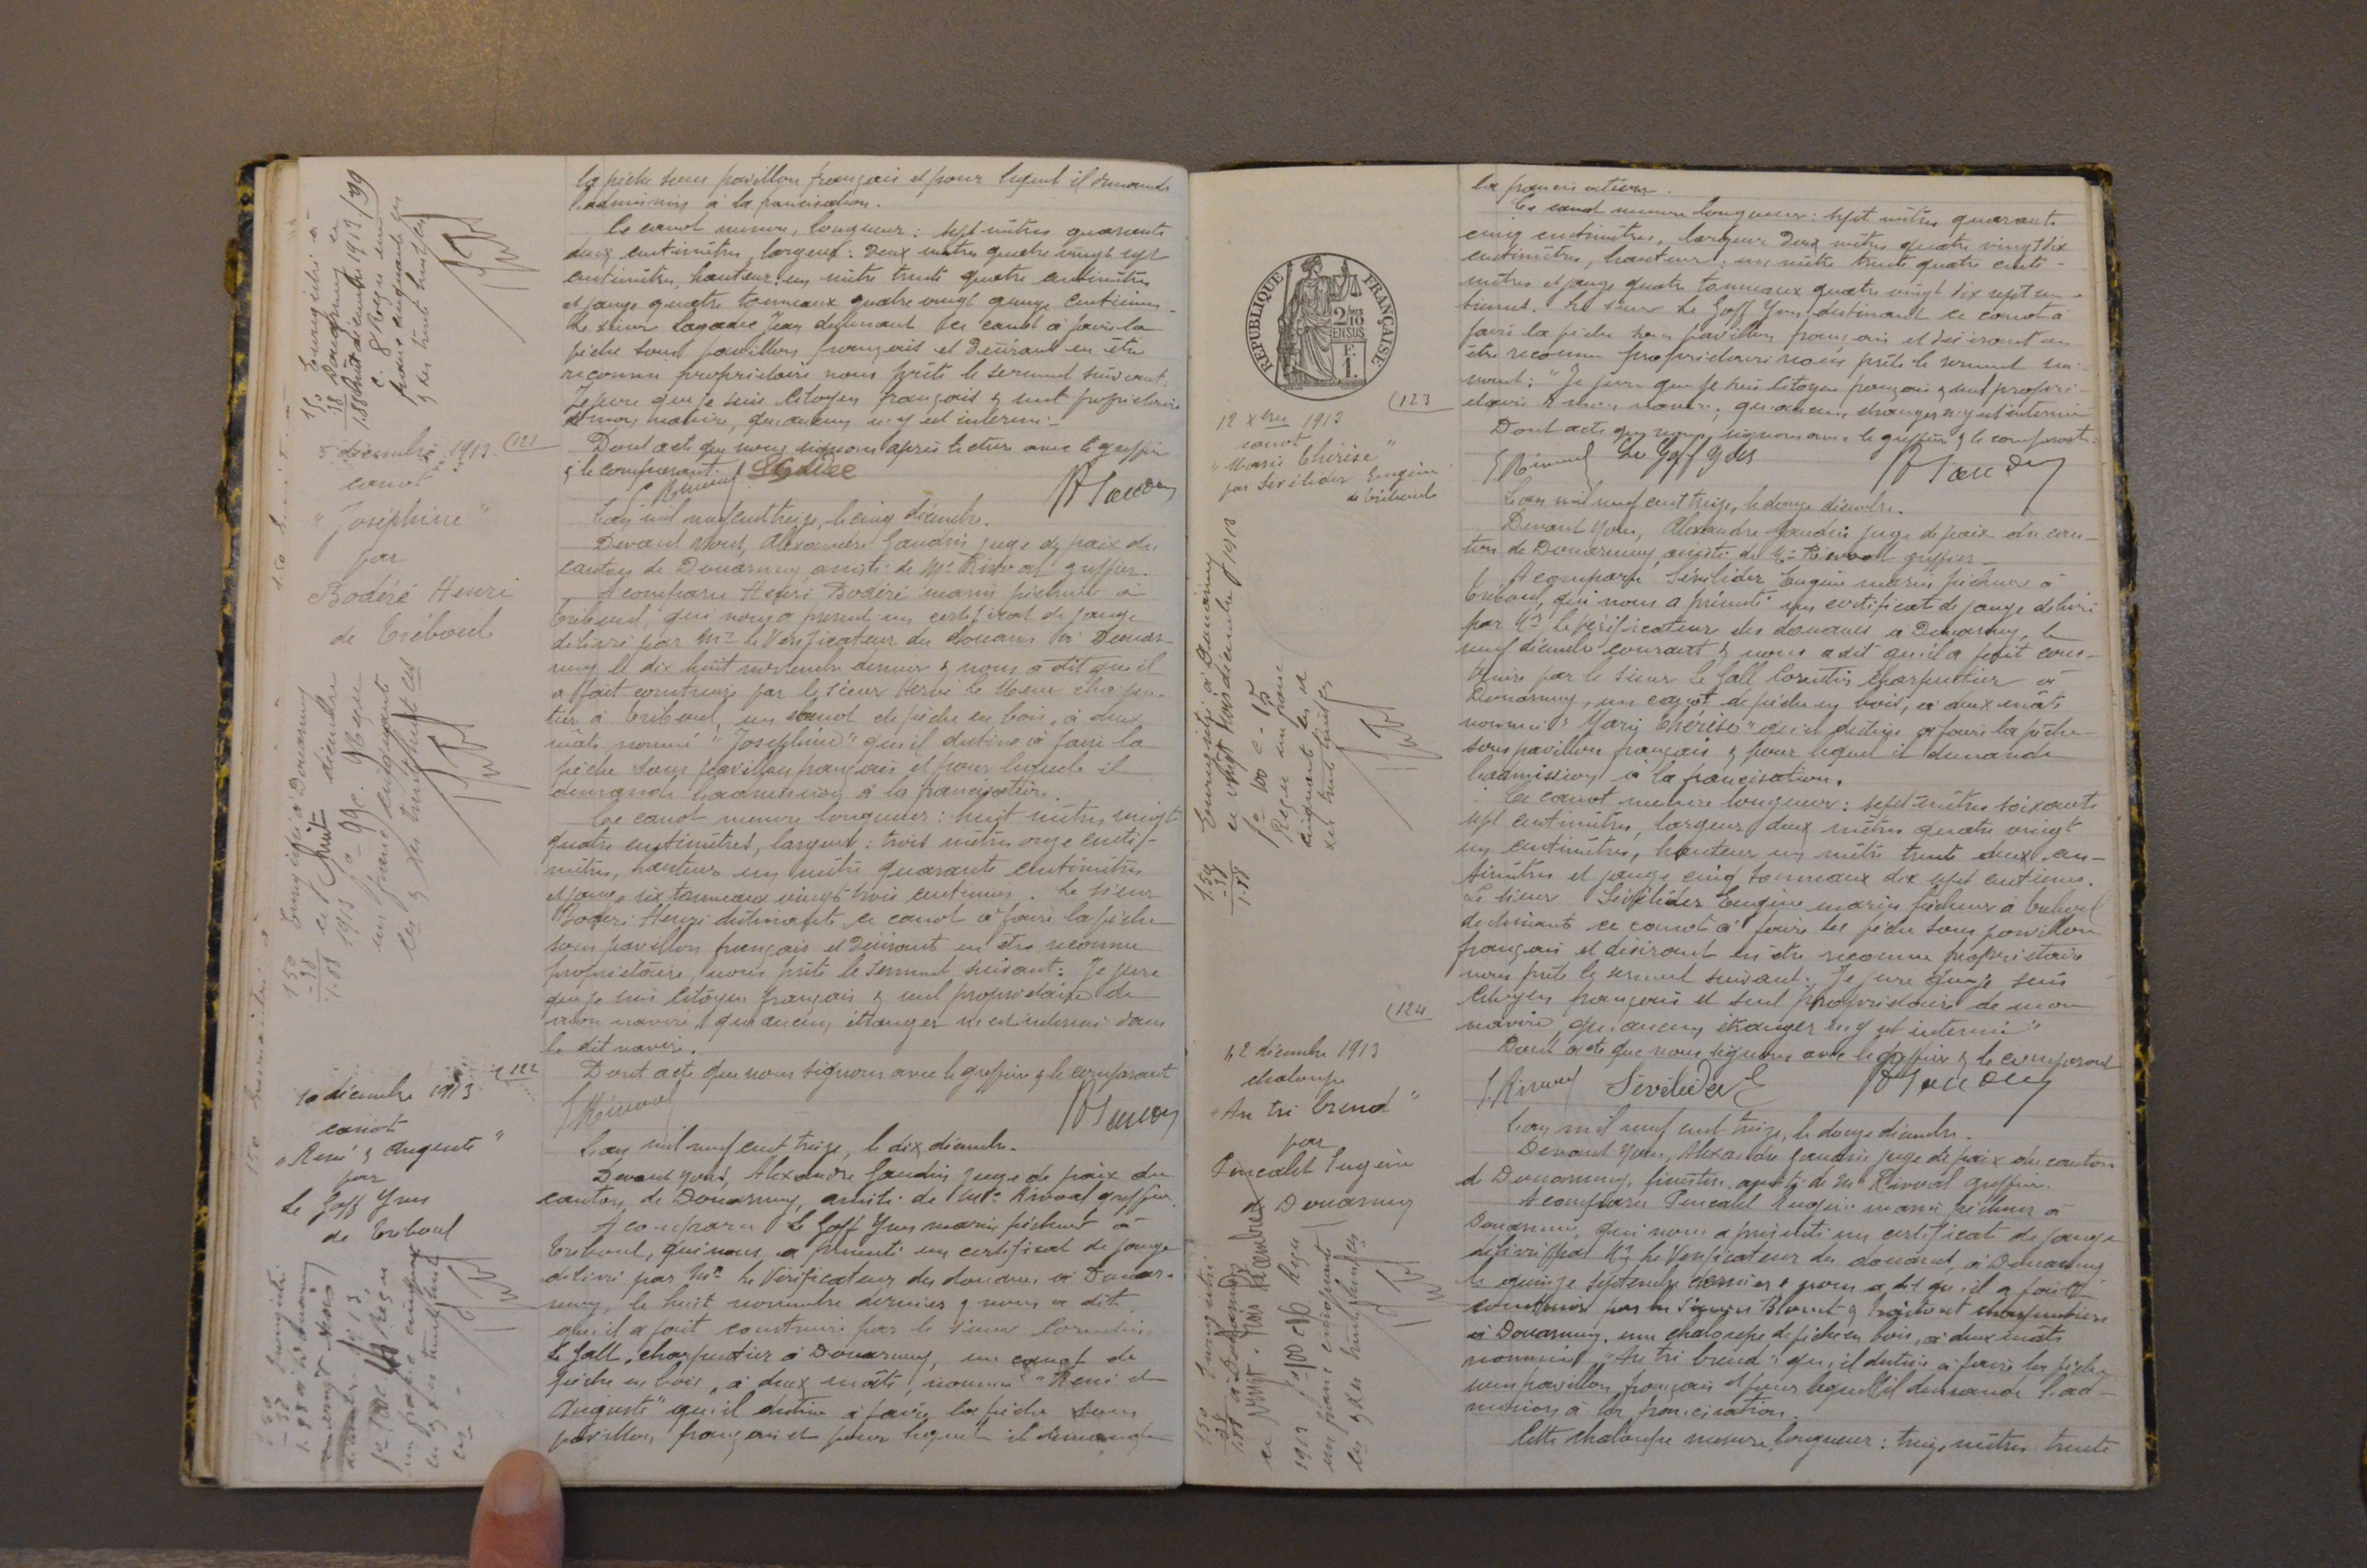 la pêche sous pavillon français et pour lequel il demande
l'admission à la francisation.
Ce canot mesure, longueur : sept mètres quarante
deux centimètres, largeur : deux mètres quatre vingt sept
centimètres, hauteur : un mètre trente quatre centimètres
et jauge quatre tonneaux quatre vingt quinze centièmes.
Le sieur Jean destinant ce canot à faire la
pêche sous pavillon français et désirant en être
reconnu propriétaire nous prête le serment suivant :
Je jure que je suis citoyen français & seul propriétaire
de mon navire, qu'aucun n'y est intervenu
Dont acte que nous signons après lecture avec le greffier
& le comparant.
5 décembre 1913
(121
canot
"Joséphine"
par
Bodéré Henri
de Tréboul
L'an mil neuf cent treize, le cinq décembre.
Devant nous, Alexandre Gaudin juge de paix du
canton de Douarnenez assisté de Me Rivoal greffier.
A comparu Henri Bodéré marin pêcheur à
Tréboul, qui nous a présenté un certificat de jauge
délivré par Mr le Vérificateur des douanes à Douar-
nenez le dix huit novembre dernier & nous a dit qu'il
a fait construire par le sieur Hervé le charpen-
tier à Tréboul, un canot de pêche en bois, à deux
mâts nommé "Joséphine" qu'il destine à faire la
pêche sous pavillon français et pour lequel il
demande l'admission à la francisation.
Ce canot mesure longueur : huit mètres vingt
quatre centimètres, largeur : trois mètres onze centi-
mètres, hauteur un mètre quarante centimètres
et jauge six tonneaux vingt trois centièmes. Le sieur
Bodéré Henri destinant ce canot à faire la pêche
sous pavillon français et désirant en être reconnu
propriétaire, nous prête le serment suivant : Je jure
que je suis citoyen français & seul propriétaire de
mon navire, qu'aucun étranger n'est intervenu dans
le dit navire.
Dont acte que nous signons avec le greffier & le comparant
10 décembre 1913
122
canot
"René & Auguste"
par
Le Goff Yves
de Tréboul
L'an mil neuf cent treize, le dix décembre.
Devant nous, Alexandre Gaudin juge de paix du
canton de Douarnenez, assisté de Me Rivoal greffier
A comparu Le Goff Yves marin pêcheur à
Tréboul, qui nous a présenté un certificat de jauge
délivré par Mr le Vérificateur des douanes à Douar-
nenez, le huit novembre dernier & nous a dit
qu'il a fait construire par le sieur Corentin
Le Gall, charpentier à Douarnenez, un canot de
pêche en bois, à deux mâts, nommé "René et
Auguste" qu'il destine à faire la pêche sous
pavillon français et pour lequel il demande
la francisation.
Ce canot mesure longueur : sept mètres quarante
cinq centimètres, largeur deux mètres quatre vingt dix
centimètres, hauteur : un mètre trente quatre centi-
mètres et jauge quatre tonneaux quatre vingt dix sept cen-
tièmes. Le sieur Le Goff Yves destinant ce canot à
faire la pêche sous pavillon français et désirant en
être reconnu propriétaire nous prête le serment sui-
vant : "Je jure que je suis citoyen français & seul proprié-
taire de mon navire, qu'aucun étranger n'y est intervenu
Dont acte que nous signons avec le greffier & le comparant.
Le Goff Yves
REPUBLIQUE FRANÇAISE
2/10
EN SUS
F.
1.
(123
12 Xbre 1913
canot
"Marie Thérèse"
par Sévélédér Eugène
de Tréboul
L'an mil neuf cent treize, le douze décembre.
Devant nous, Alexandre Gaudin juge de paix du can-
ton de Douarnenez, assisté de Me Rivoal greffier
A comparu Sévélédér Eugène marin pêcheur à
Tréboul, qui nous a présenté un certificat de jauge délivré
par Mr le vérificateur des douanes à Douarnenez, le
neuf décembre courant & nous a dit qu'il a fait cons-
truire par le sieur Le Gall Corentin charpentier à
Douarnenez, un canot de pêche en bois, à deux mâts
nommé "Marie Thérèse" qu'il destine à faire la pêche
sous pavillon français & pour lequel il demande
l'admission à la francisation.
Ce canot mesure longueur : sept mètres soixante
sept centimètres, largeur deux mètres quatre vingt
un centimètres, hauteur un mètre trente deux cen-
timètres et jauge cinq tonneaux dix sept centièmes.
Le sieur Sévélédér Eugène marin pêcheur à Tréboul
destinant ce canot à faire la pêche sous pavillon
français et désirant en être reconnu propriétaire
nous prête le serment suivant : Je jure que je suis
citoyen français et seul propriétaire de mon
navire, qu'aucun étranger n'y est intervenu"
Dont acte que nous signons avec le greffier & le comparant
(124
12 décembre 1913
chaloupe
"An tri breud"
par
Eugène
Douarnenez
L'an mil neuf cent treize, le douze décembre.
Devant nous, Alexandre Gaudin juge de paix du canton
de Douarnenez, finistère, assisté de Me Rivoal greffier.
A comparu Eugène marin pêcheur à
Douarnenez, qui nous a présenté un certificat de jauge
délivré par Mr le Vérificateur des douanes, à Douarnenez
le quinze septembre dernier & nous a dit qu'il a fait
construire par les sieurs & charpentiers
à Douarnenez, une chaloupe de pêche en bois, à deux mâts
nommée "An tri breud" qu'il destine à faire la pêche
sous pavillon français et pour lequel il demande l'ad-
mission à la francisation.
Cette chaloupe mesure, longueur : treize mètres trente